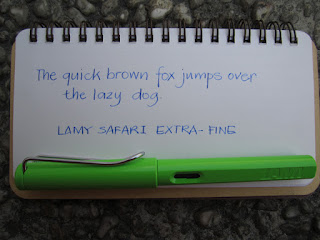 The quick brown fox jumps over
the lazy dog.
LAMY SAFARI EXTRA-FINE
LAMY